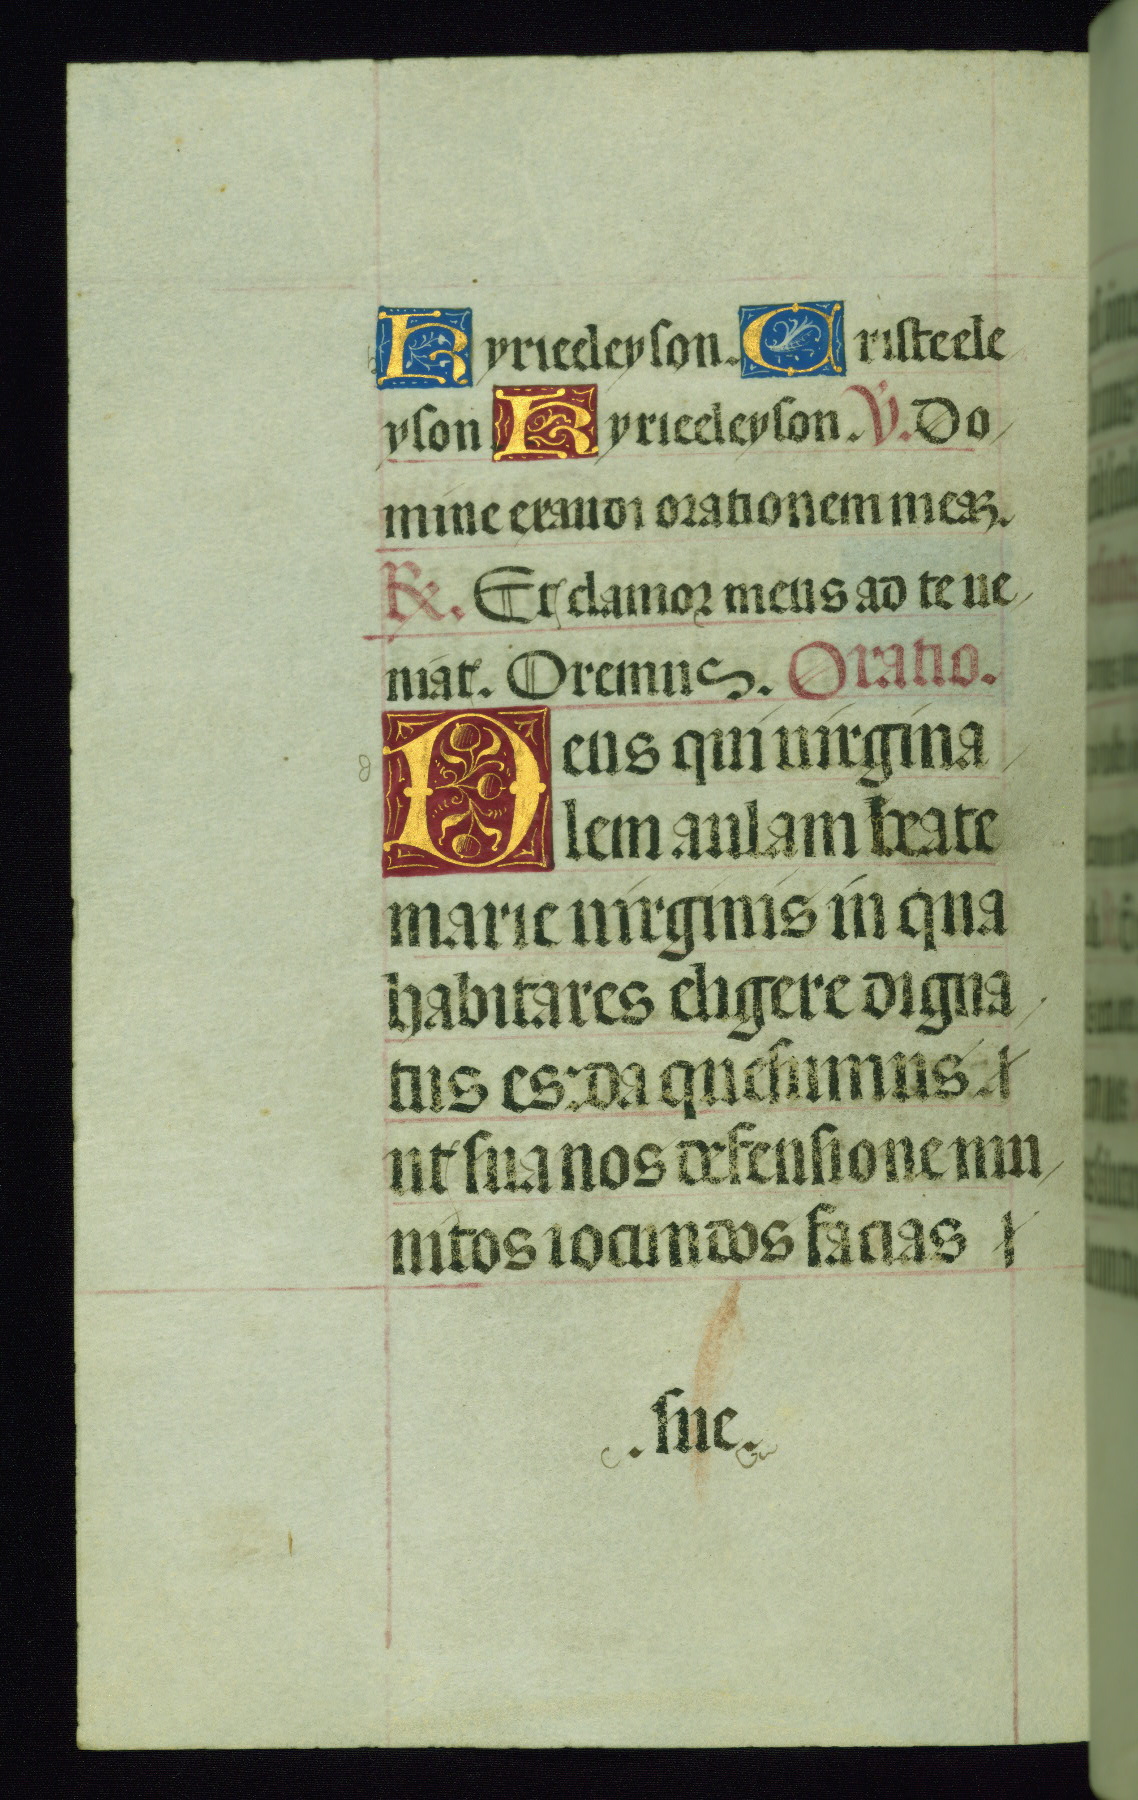 Kyrieeleyson. Cristeele
yson Kyrieeleyson. V. Do
mine exaudi orationem meaz.
Rx. Et clamor meus ad te ue
niat. Oremus. Oratio.
Deus qui uirgina
lem aulam beate
marie uirginis in qua
habitares eligere digna
tus es: da quesumus.
ut sua nos defensione mu
nitos iocundos facias
. sue .